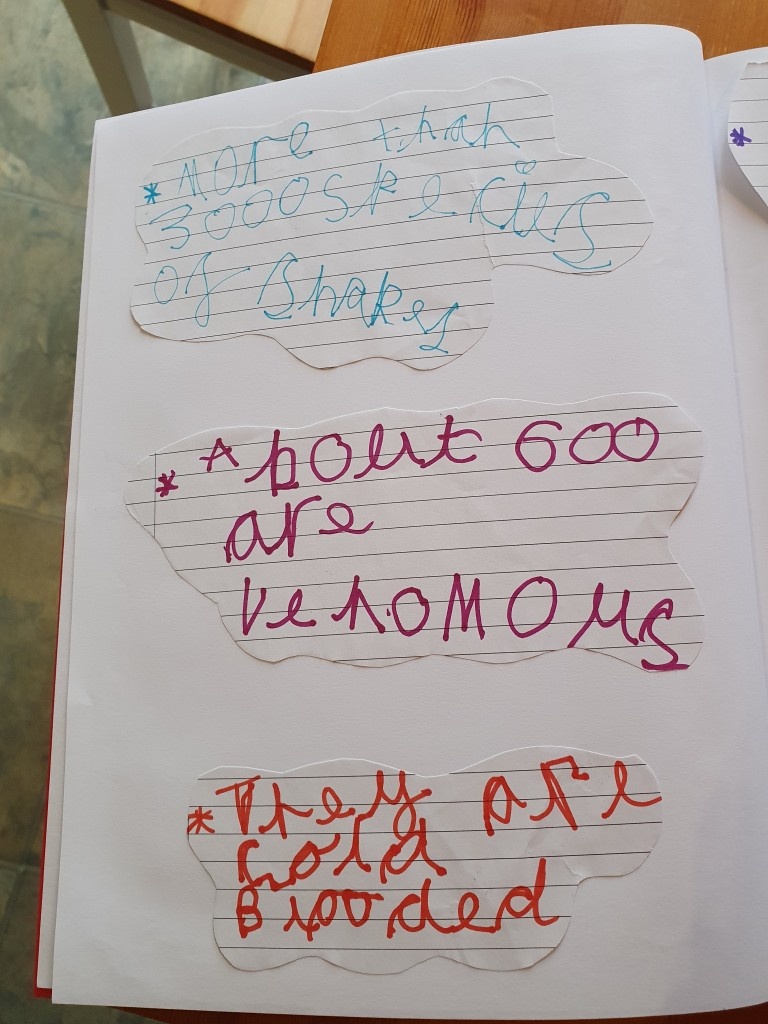 * More than
3000 Specius
of Snakes
* About 600
are
venomous
* They are
Cold
Blooded
*